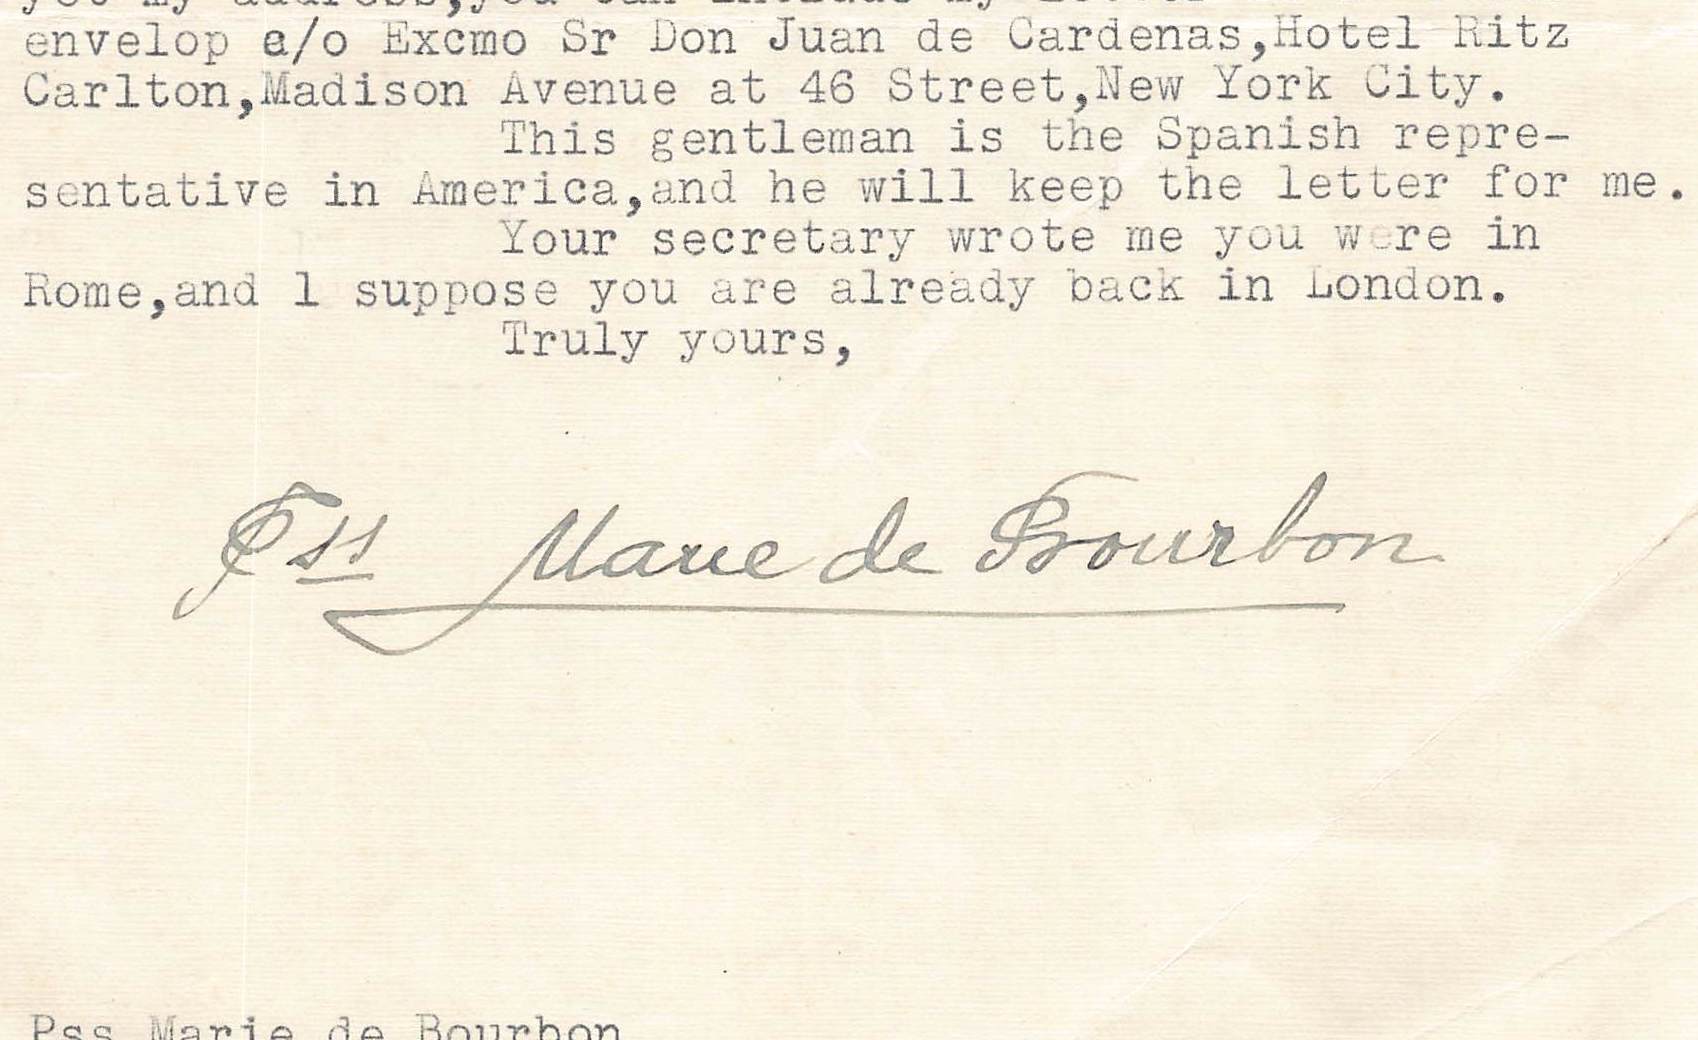 yet my address,you can include my letter
envelop a/o Excmo Sr Don Juan de Cardenas,Hotel Ritz
Carlton,Madison Avenue at 46 Street,New York City.
This gentleman is the Spanish repre-
sentative in America,and he will keep the letter for me.
Your secretary wrote me you were in
Rome,and l suppose you are already back in London.
Truly yours,
Pss Marie de Bourbon
Pss Marie de Bourbon